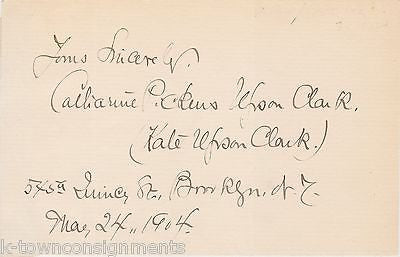 Yours Sincerely,
Catharine Pickens Upson Clark.
(Kate Upson Clark.)
545a Quincy St., Brooklyn. N.Y.
May 24, 1904.
k-townconsignments